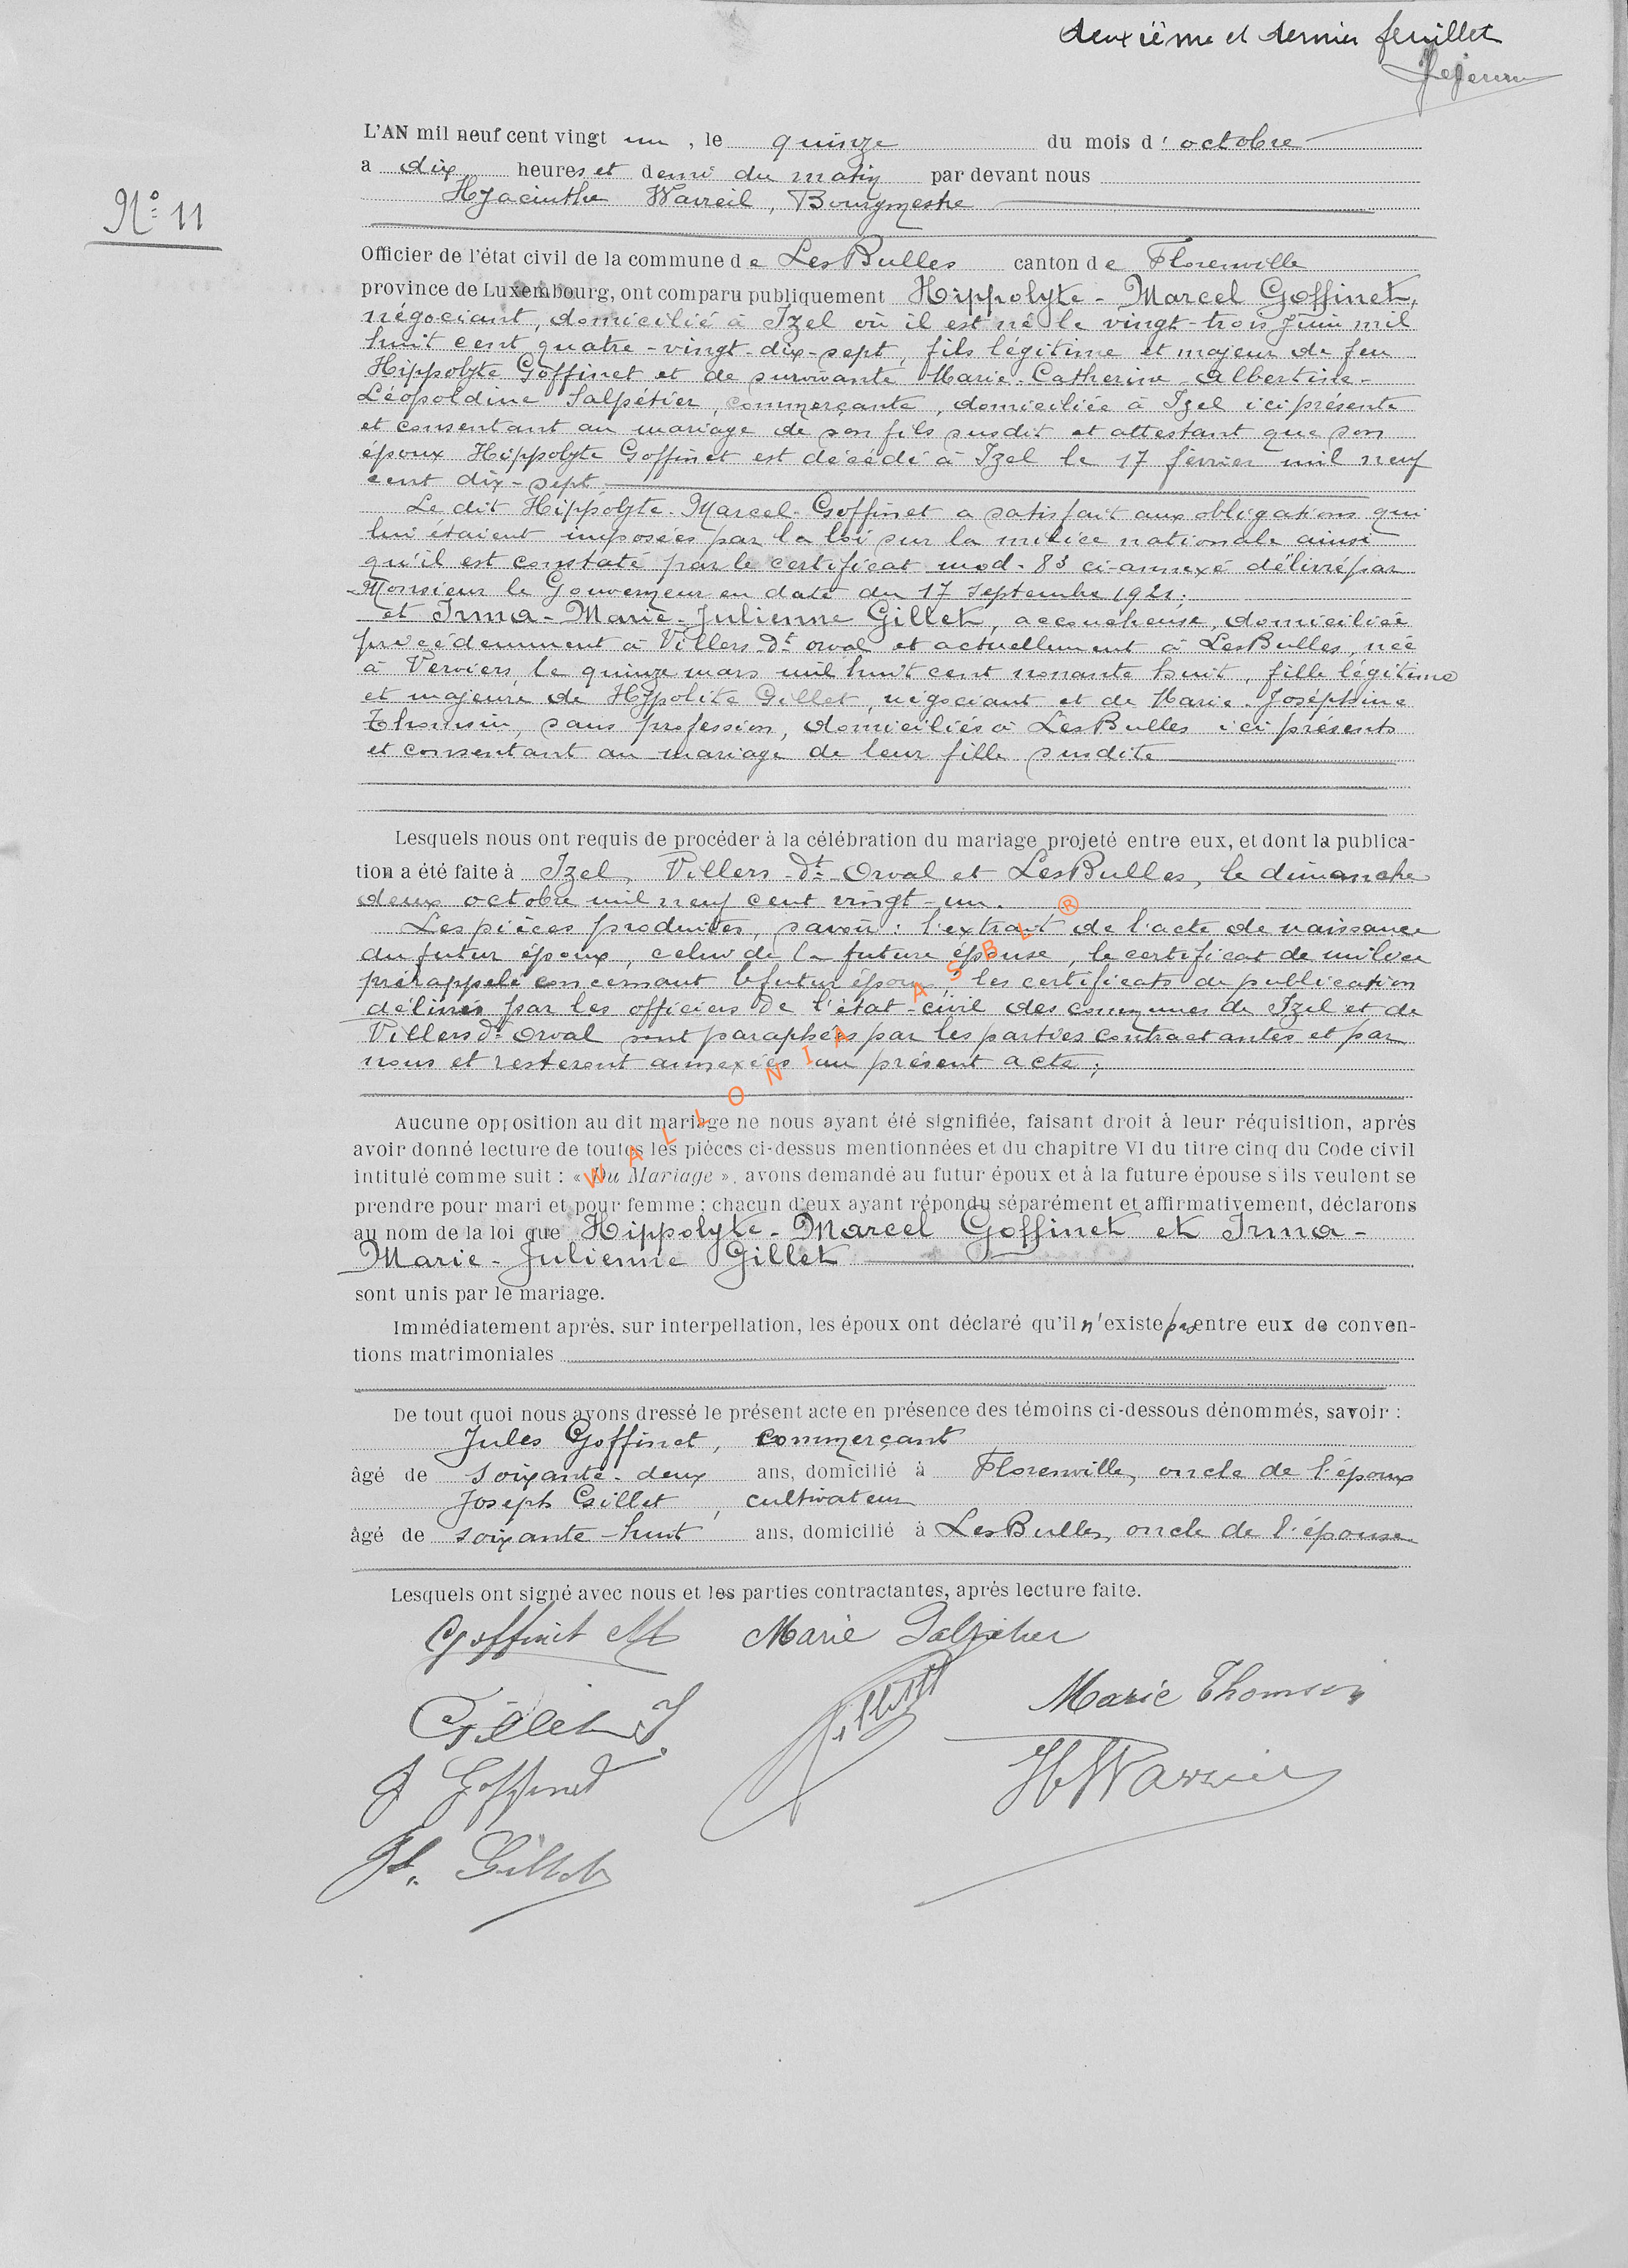 deuxième et dernier feuillet
N° 11
L'AN mil neuf cent vingt un, le quinze du mois d'octobre
a dix heures et demi du matin par devant nous
Hyacinthe Warreil, Bourgmestre
Officier de l'état civil de la commune de Les Bulles canton de Florenville
province de Luxembourg, ont comparu publiquement Hippolyte-Marcel Goffinet,
négociant, domicilié à Izel où il est né le vingt-trois Juin mil
huit cent quatre-vingt-dix-sept, fils légitime et majeur de feu
Hippolyte Goffinet et de survivante Marie-Catherine Albertine-
Léopoldine Salpétier, commerçante, domiciliée à Izel ici présente
et consentant au mariage de son fils susdit et attestant que son
époux Hippolyte Goffinet est décédé à Izel le 17 février mil neuf
cent dix-sept
Le dit Hippolyte-Marcel-Goffinet a satisfait aux obligations qui
lui étaient imposées par la loi sur la milice nationale ainsi
qu'il est constaté par le certificat mod. 83 ci-annexé délivré par
Monsieur le Gouverneur en date du 17 Septembre 1921;
et Irma-Marie-Julienne Gillet, accoucheuse, domiciliée
précédemment à Villers-dt orval et actuellement à Les Bulles, née
à Verviers, le quinze mars mil huit cent nonante huit, fille légitime
et majeure de Hypolite Gillet, négociant et de Marie-Joséphine
Thomsin, sans profession, domiciliés à Les Bulles ici présents
et consentant au mariage de leur fille susdite
Lesquels nous ont requis de procéder à la célébration du mariage projeté entre eux, et dont la publica-
tion a été faite à Izel, Villers-dt-Orval et Les Bulles, le dimanche
deux octobre mil neuf cent vingt-un.
Les pièces produites, savoir: l'extrait de l'acte de naissance
du futur époux, celui de la future épouse, le certificat de milice
prérappelé concernant le futur époux, les certificats de publication
délivrés par les officiers de l'état-civil des communes de Izel et de
Villers dt Orval sont paraphées par les parties contractantes et par
nous et resteront annexées au présent acte;
Aucune opposition au dit mariage ne nous ayant été signifiée, faisant droit à leur réquisition, après
avoir donné lecture de toutes les pièces ci-dessus mentionnées et du chapitre VI du titre cinq du Code civil
intitulé comme suit : « Du Mariage », avons demandé au futur époux et à la future épouse s'ils veulent se
prendre pour mari et pour femme ; chacun d'eux ayant répondu séparément et affirmativement, déclarons
au nom de la loi que Hippolyte-Marcel Goffinet et Irma-
Marie-Julienne Gillet
sont unis par le mariage.
Immédiatement après, sur interpellation, les époux ont déclaré qu'il n'existe pas entre eux de conven-
tions matrimoniales
De tout quoi nous avons dressé le présent acte en présence des témoins ci-dessous dénommés, savoir :
Jules Goffinet, commerçant
âgé de soixante-deux ans, domicilié à Florenville, oncle de l'époux
Joseph Gillet, cultivateur
âgé de soixante-huit ans, domicilié à Les Bulles, oncle de l'épouse
Lesquels ont signé avec nous et les parties contractantes, après lecture faite.
Goffinet M Marie Salpétier
Gillet J. Gillet Marie Thomsin
J Goffinet H Warreil
Jh. Gillet
WALLONIA ASBL ®